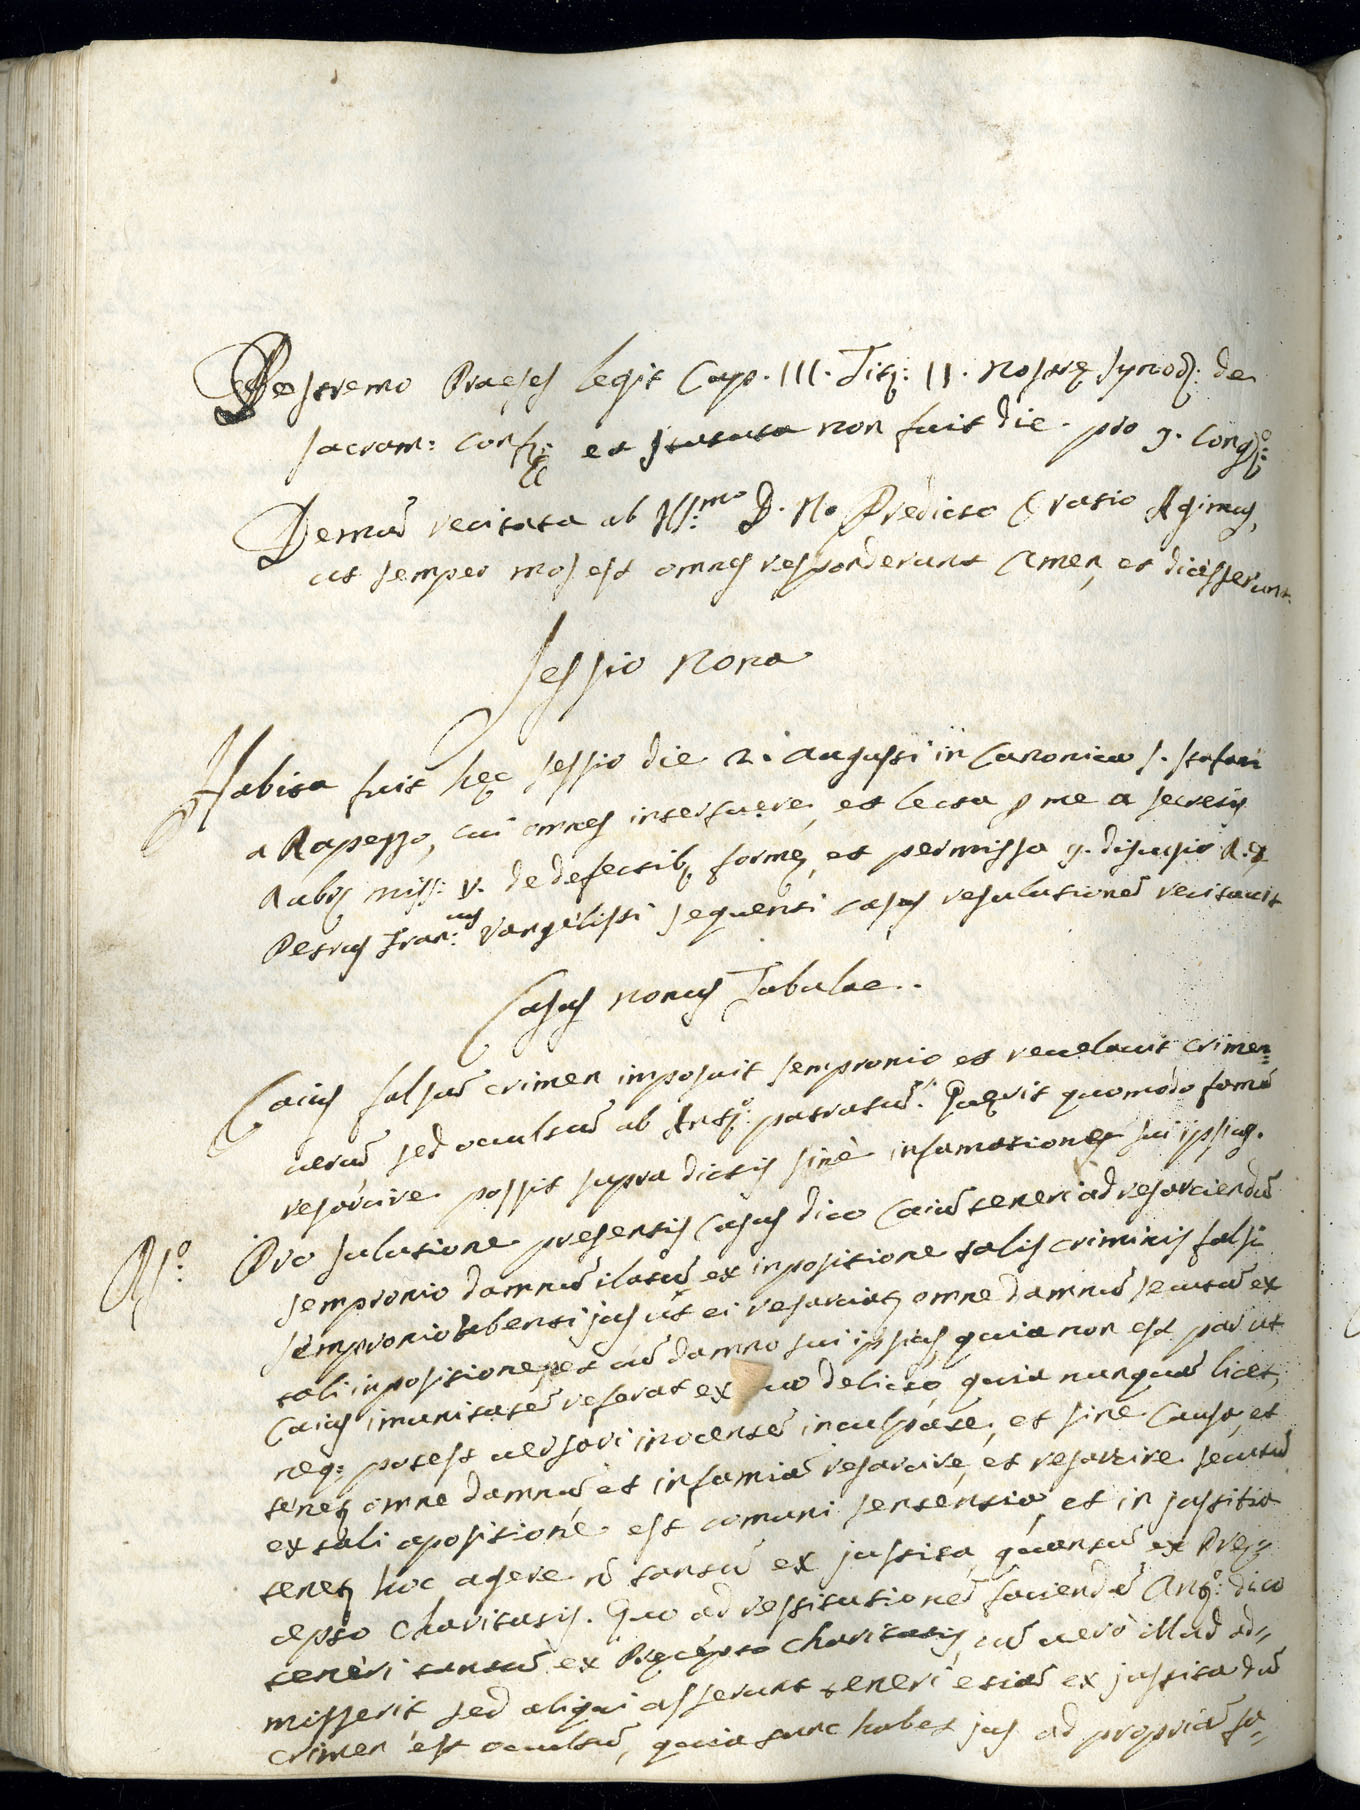 Postremo Praeses legit Cap. III. Tit: II. Nostrę synod: de
sacram: Conf: et statuta non fuit die. pro 9. Cong:
Demũ recitata ab Ill:mo D. No Predicto Oratio Agimus,
ut semper mos est omnes responderunt Amen, et dicesserunt.
Sessio Nona
Habita fuit hęc sessio die 2. Augusti in Canonica S. Stefani
a Rapezzo, cui omnes interfuere, et lecta p me a secretis
Rub: miss: V. de defectib; formę, et permissa 9. discusio R. D.
Petrus Fran:cus Vangelisti sequenti casus resulutionẽ recitavit
Casus Nonus Tabulae.
Caius falsũ crimen imposuit Sempronio et revelavit crimen
verũ sed ocultũ ab Ant:o patratũ. Quęrit quomodo famã
resarcire possit supra dictis sinè infamationes sui ipsius.
Rs:o Pro sulutione presentis Casus dico Caiũ teneri ad resarciendũ
Sempronio damnũ ilatũ ex inpositione talis criminis falsi
Sempronio habenti jus ut ei resarciat omne damnũ secutũ ex
tali inpositione, et cũ damno sui ipsius, quia non est par ut
Caius imunitatẽ referat ex suo delicto, quia nunquã licet,
neq: potest aversari inocentẽ inculpatè, et sinè Causa, et
tenet omne damnũ et infamiã resarcire, et resarcire secutũ
ex tali apositione est comuni sententia, et in justitia
tenet hoc agere nõ tantũ ex justitia, quantũ ex Pręc
epto Charitatis. Quo ad restitutionẽ faciendã Ant:o dico
teneri tantũ ex Pręcepto Charitatis, cũ verò illud ad=
misserit sed aliqui asserunt teneri etiã ex justitia dũ
crimen est ocultũ, quia tunc habet jus ad propriã fa=